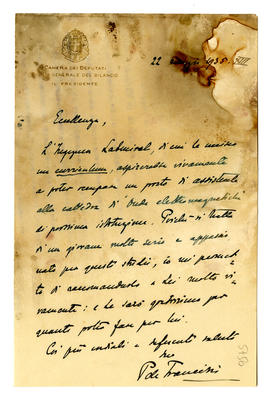 CAMERA DEI DEPUTATI
GENERALE DEL BILANCIO
IL PRESIDENTE
22 maggio 1935 XIII
Eccellenza,
L'Ingegner Latmiral, di cui le unisco
un curriculum, aspirerebbe vivamente
a poter occupare un posto di assistente
alla cattedra di onde elettromagnetiche
di prossima istituzione. Poichè si tratta
di un giovane molto serio e appassio
nato per questi studi, io mi permet
to di raccomandarlo a Lei molto vi
vamente: e Le sarò gratissimo per
quanto potrà fare per lui.
Coi più cordiali e deferenti saluti
suo
P de Francisci